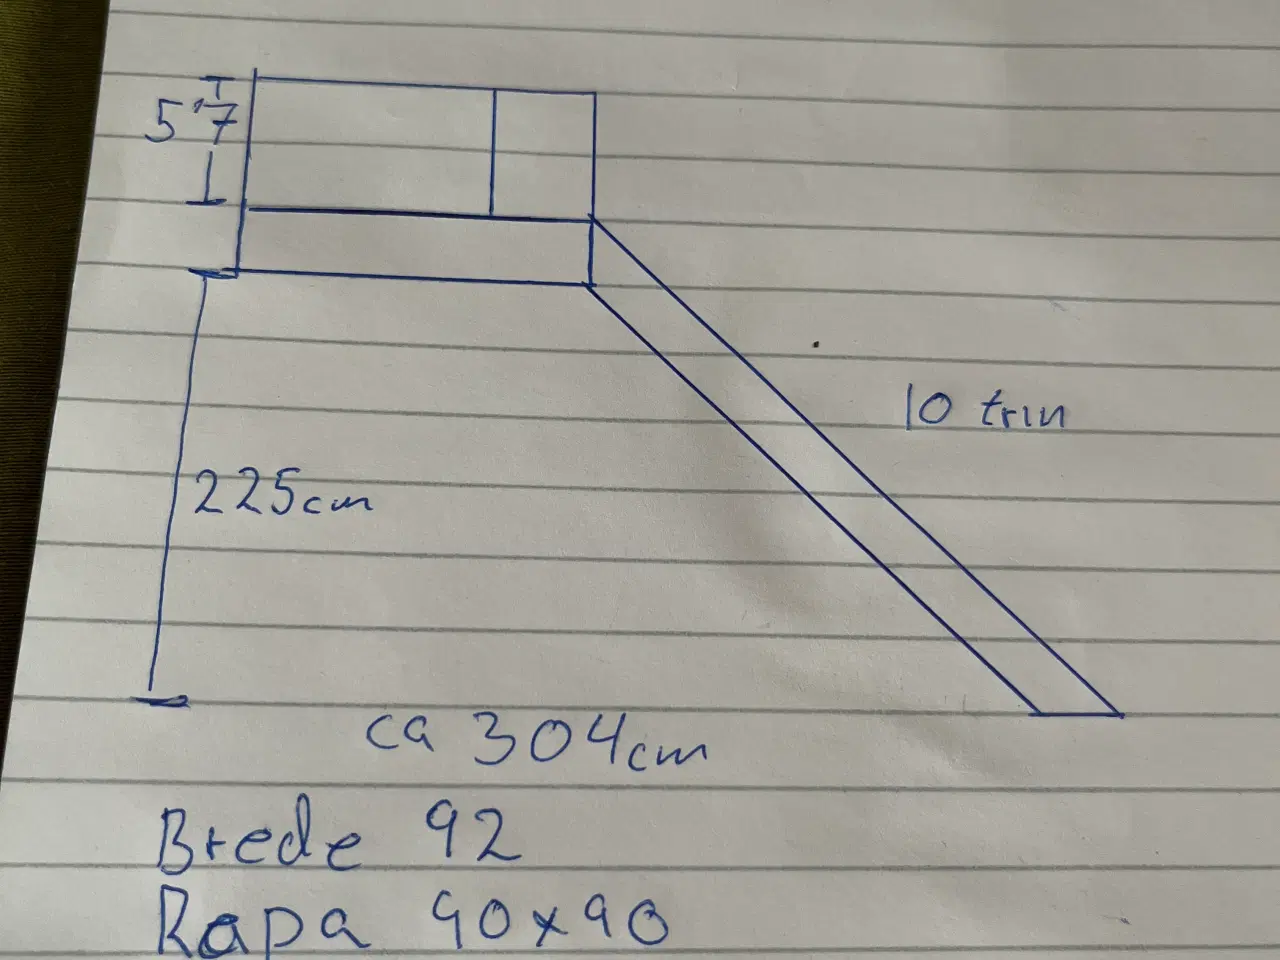 5'7
10 trin
225cm
ca 304cm
Brede 92
Rapa 90x90